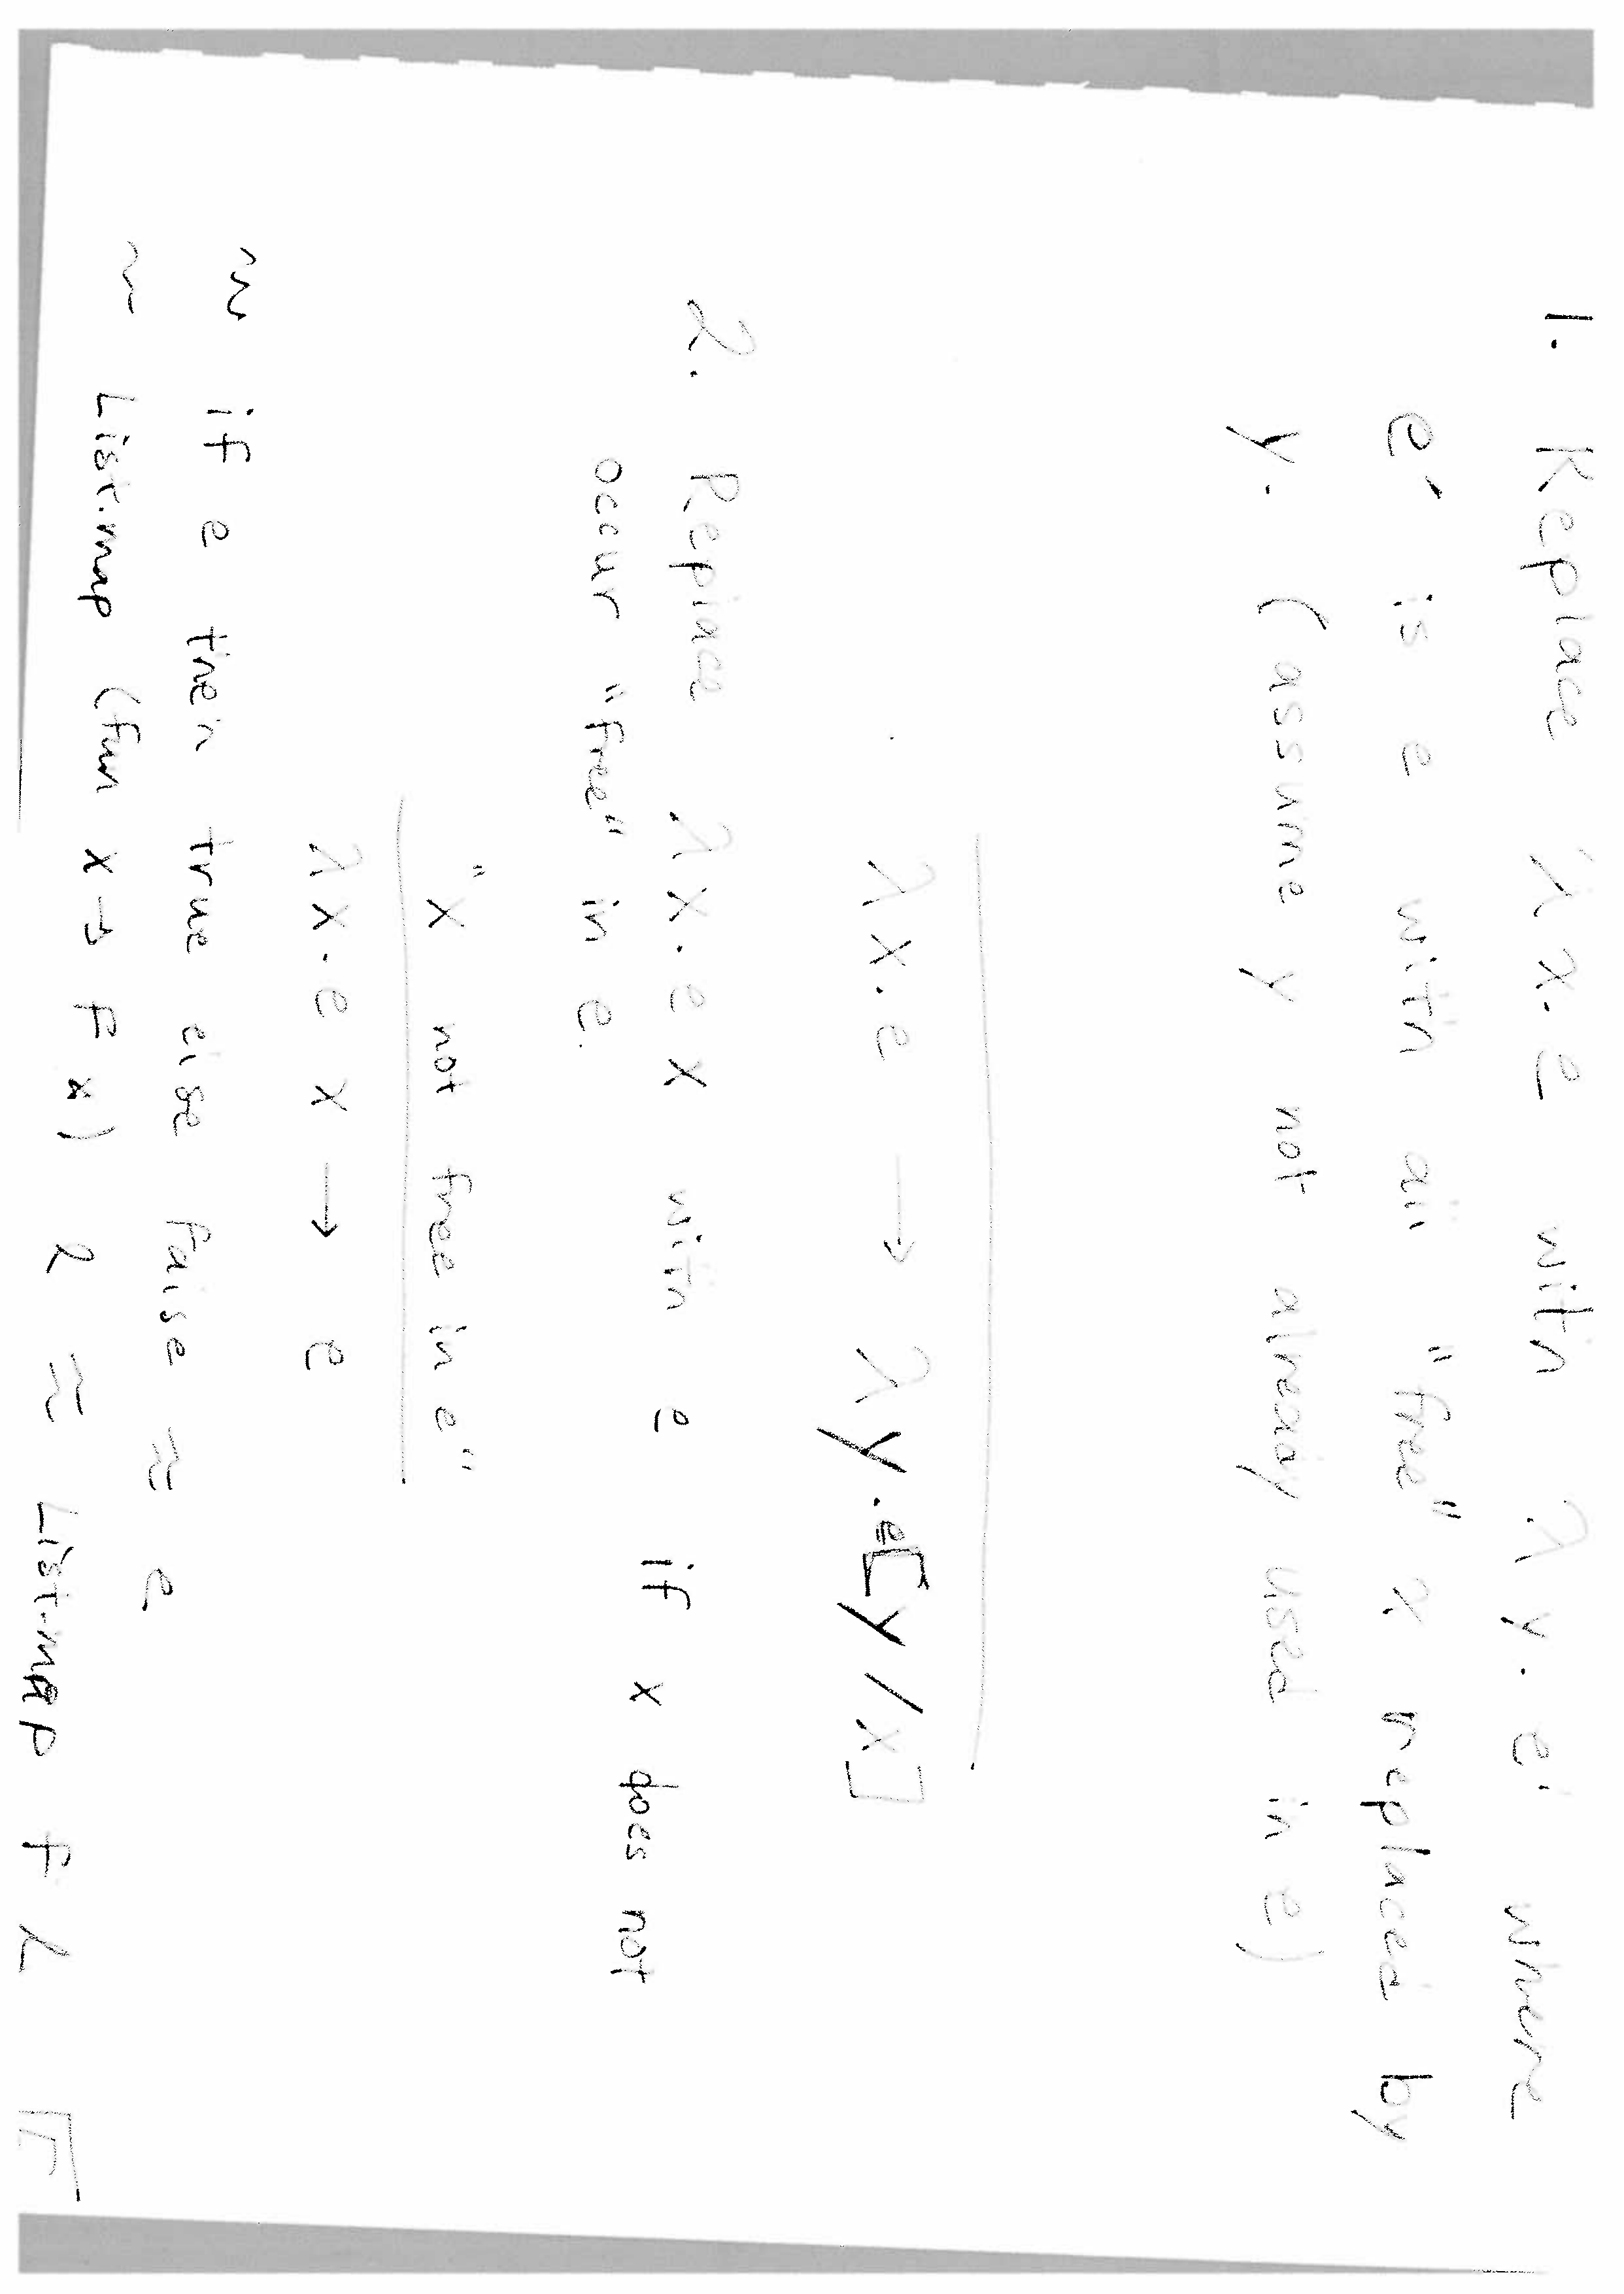 1. Replace λx.e with λy.e' where
e' is e with all "free" x replaced by
y. (assume y not already used in e)
λx.e → λy.e[y/x]
2. Replace λx.e x with e if x does not
occur "free" in e.
"x not free in e"
λx.e x → e
~ if e then true else false ≈ e
~ List.map (fun x → f x) l ≈ List.map f l